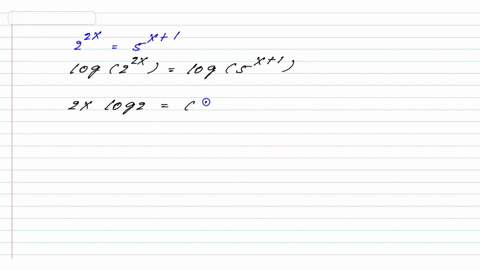 2^{2x} = 5^{x+1}
log (2^{2x}) = log (5^{x+1})
2x log2 = (